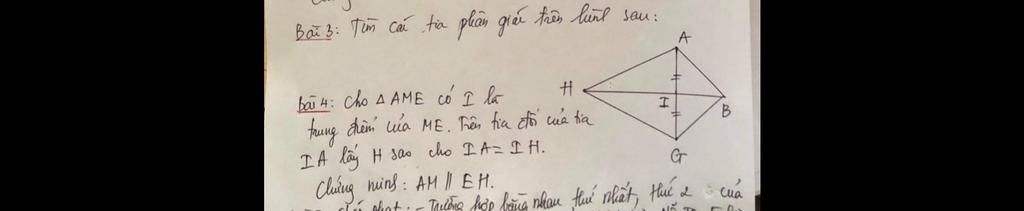 Bài 3: Tìm các tia phân giác trên hình sau:
A
H
I
B
G
Bài 4: Cho △ AME có I là
trung điểm của ME. Trên tia đối của tia
IA lấy H sao cho IA = IH.
Chứng minh: AM // EH.
Trường hợp bằng nhau thứ nhất, thứ 2 của